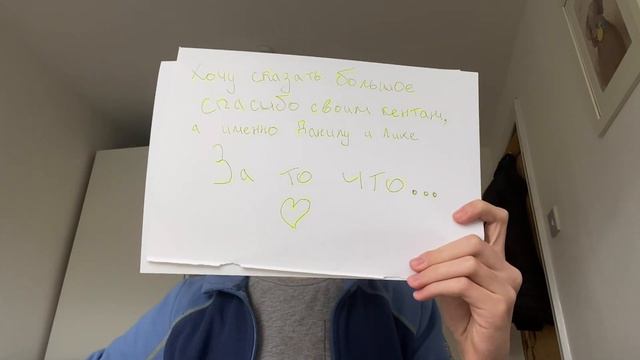 Хочу сказать большое
спасибо своим кентам,
а именно Вакилу и Лике
За то что...